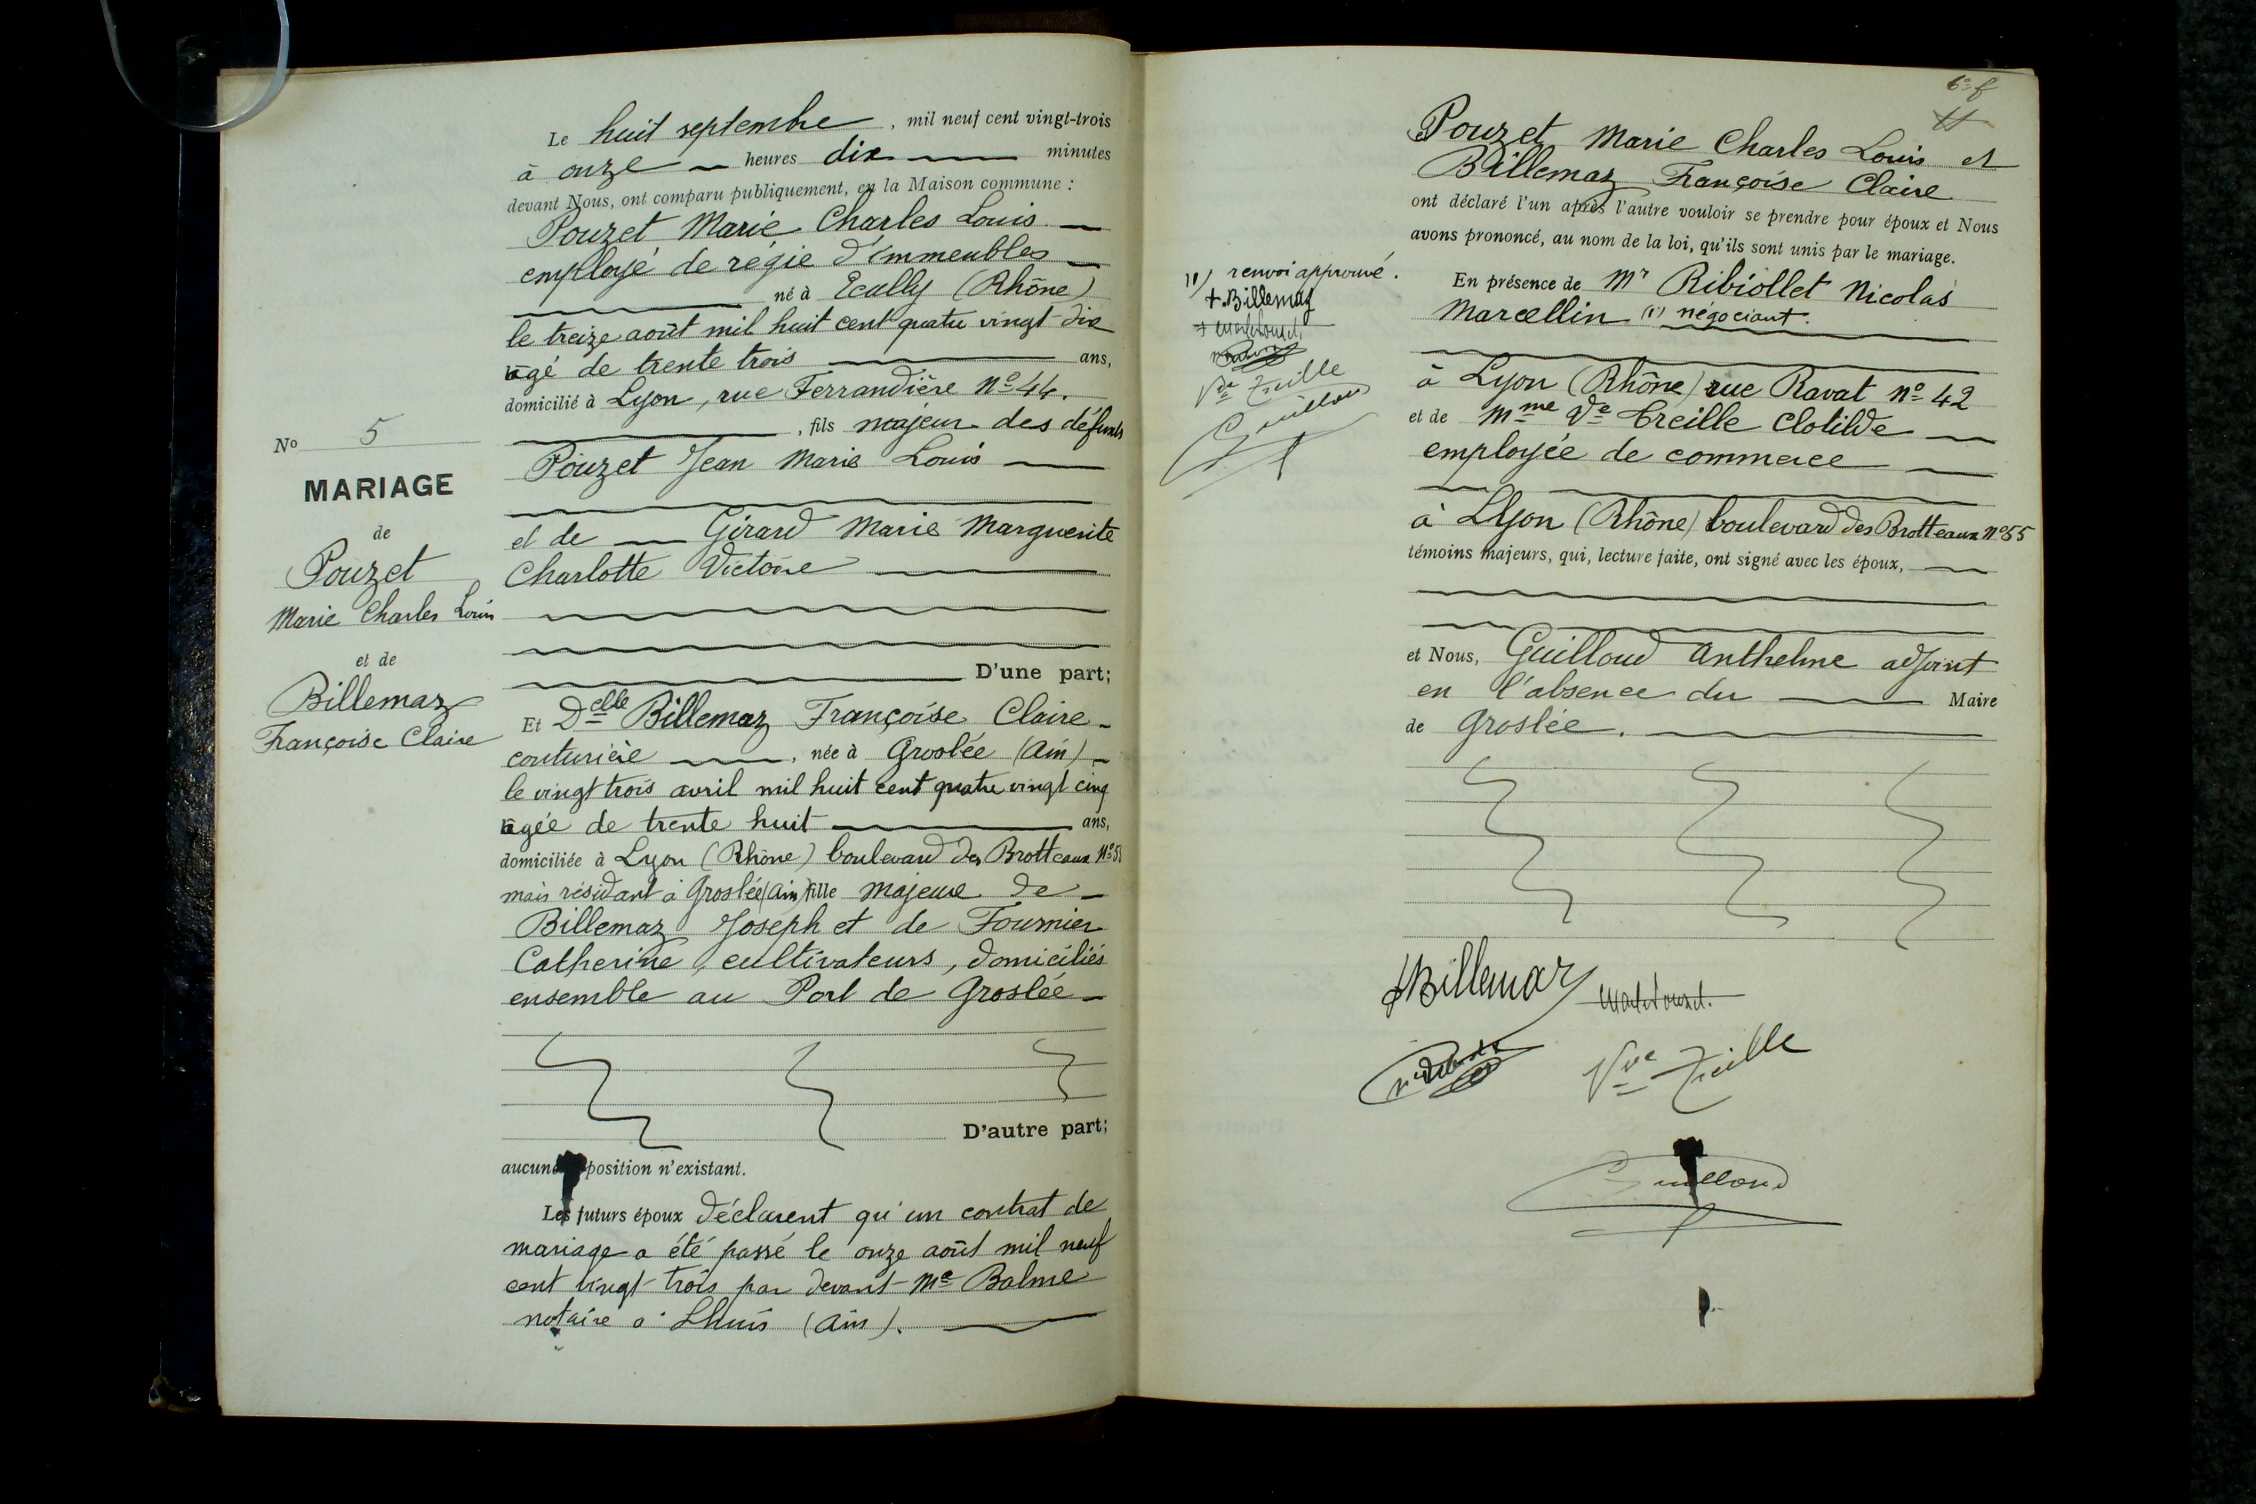 Le huit septembre, mil neuf cent vingt-trois
à onze heures dix minutes
devant Nous, ont comparu publiquement, en la Maison commune :
Pouzet Marie Charles Louis
employé de régie d'immeubles
né à Ecully (Rhône)
le treize août mil huit cent quatre vingt-dix
âgé de trente trois ans,
domicilié à Lyon, rue Ferrandière No 44.
, fils majeur des défunts
Pouzet Jean Marie Louis
et de Girard Marie Marguerite
Charlotte Victoire
D'une part;
Et Delle Billemaz Françoise Claire
couturière, née à Groslée (Ain)
le vingt trois avril mil huit cent quatre vingt cinq
âgée de trente huit ans,
domiciliée à Lyon (Rhône) boulevard des Brotteaux No 55
mais résidant à Groslée (Ain) fille majeure de
Billemaz Joseph et de Fournier
Catherine, cultivateurs, domiciliés
ensemble au Port de Groslée
D'autre part;
aucune opposition n'existant.
Les futurs époux déclarent qu'un contrat de
mariage a été passé le onze août mil neuf
cent vingt-trois par devant Me Balme
notaire à Lhuis (Ain).
No 5
MARIAGE
de
Pouzet
Marie Charles Louis
et de
Billemaz
Françoise Claire
6e f
Pouzet Marie Charles Louis et
Billemaz Françoise Claire
ont déclaré l'un après l'autre vouloir se prendre pour époux et Nous
avons prononcé, au nom de la loi, qu'ils sont unis par le mariage.
En présence de Mr Ribiollet Nicolas
Marcellin (1) négociant.
à Lyon (Rhône) rue Ravat No 42
et de Mme Ve Creille Clotilde
employée de commerce
à Lyon (Rhône) boulevard des Brotteaux No 55
témoins majeurs, qui, lecture faite, ont signé avec les époux,
et Nous, Guilloud Anthelme adjoint
en l'absence du Maire
de Groslée.
(1) renvoi approuvé.
Billemaz
Vve Treille
Guilloud
Billemaz
Vve Treille
Guilloud